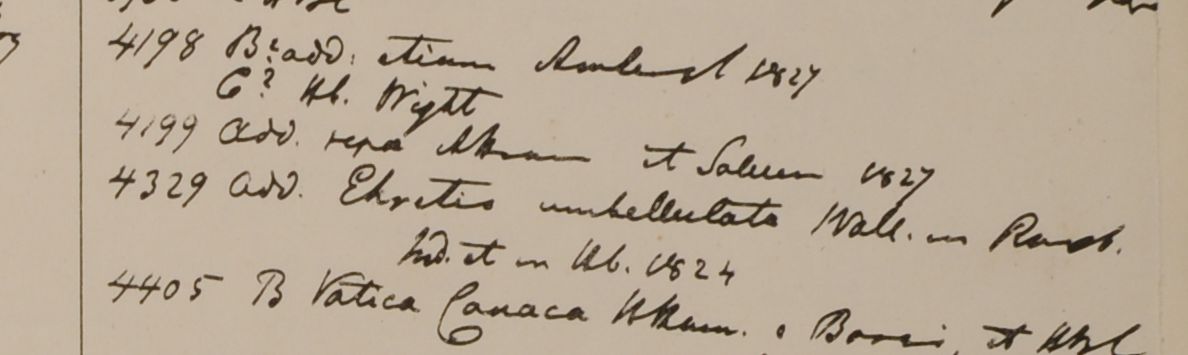 4198 B? add. etiam Amherst 1827
C? Hb. Wight
4199 add. ripa Attran et Saluen 1827
4329 add. Ehretia umbellulata Wall. in Roxb.
Ind. et in Hb. 1824
4405 B Vatica Hb. Ham. e et HBC